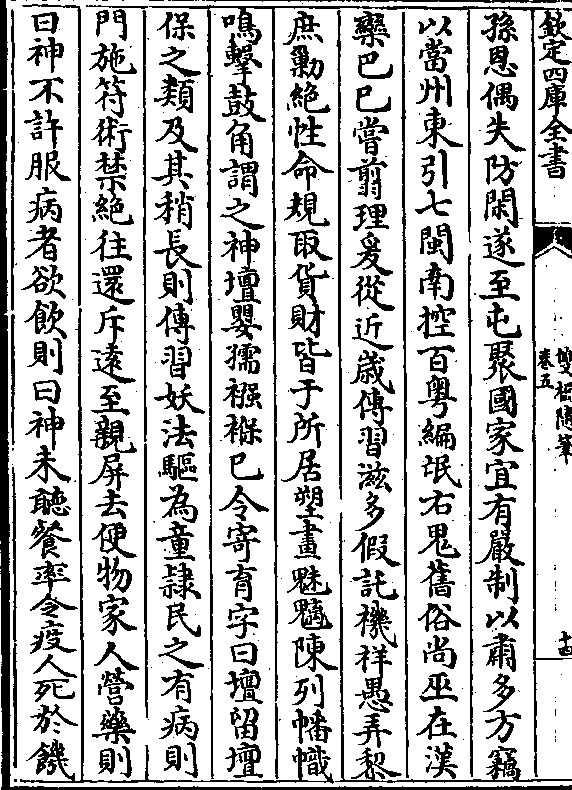 欽定四庫全書
雙橋隨筆
卷五
十四
孫恩偶失防閑遂至屯聚國家宜有嚴制以肅多方竊
以當州東引七閩南控百粤編氓右鬼舊俗尚巫在漢
欒巴已嘗翦理爰從近歲傳習滋多假託禨祥愚弄黎
庶勦絶性命規取貨財皆于所居塑畫魅魑陳列幡幟
鳴擊鼓角謂之神壇嬰孺襁褓已令寄育字曰壇留壇
保之類及其稍長則傳習妖法驅為童隷民之有病則
門施符術禁絶往還斥遠至親屏去便物家人營藥則
曰神不許服病者欲飲則曰神未聴餐率令疫人死於饑